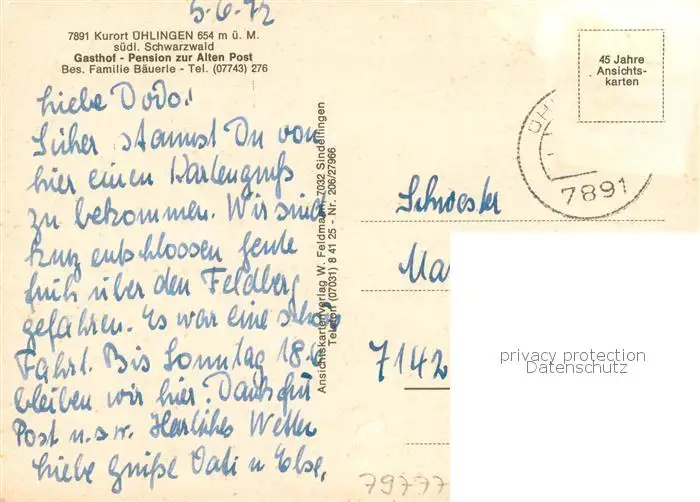 5.6.72
7891 Kurort ÜHLINGEN 654 m ü. M.
südl. Schwarzwald
Gasthof - Pension zur Alten Post
Bes. Familie Bäuerle - Tel. (07743) 276
45 Jahre
Ansichts-
karten
Liebe Dodo!
Sicher staunst Du von
hier einen Kartengruß
zu bekommen. Wir sind
kurz entschlossen heute
früh über den Feldberg
gefahren. Es war eine schöne
Fahrt. Bis Sonntag 18.6.
bleiben wir hier. Dank für
Post u.s.w. Herrliches Wetter
Liebe Grüße Vati u Else.
Ansichtskartenverlag W. Feldmann, 7032 Sindelfingen
Telefon (07031) 8 41 25 - Nr. 206/27966
7891
Schwester
Ma
7142
privacy protection
Datenschutz
79777